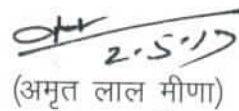 2.5.17
(अमृत लाल मीणा)